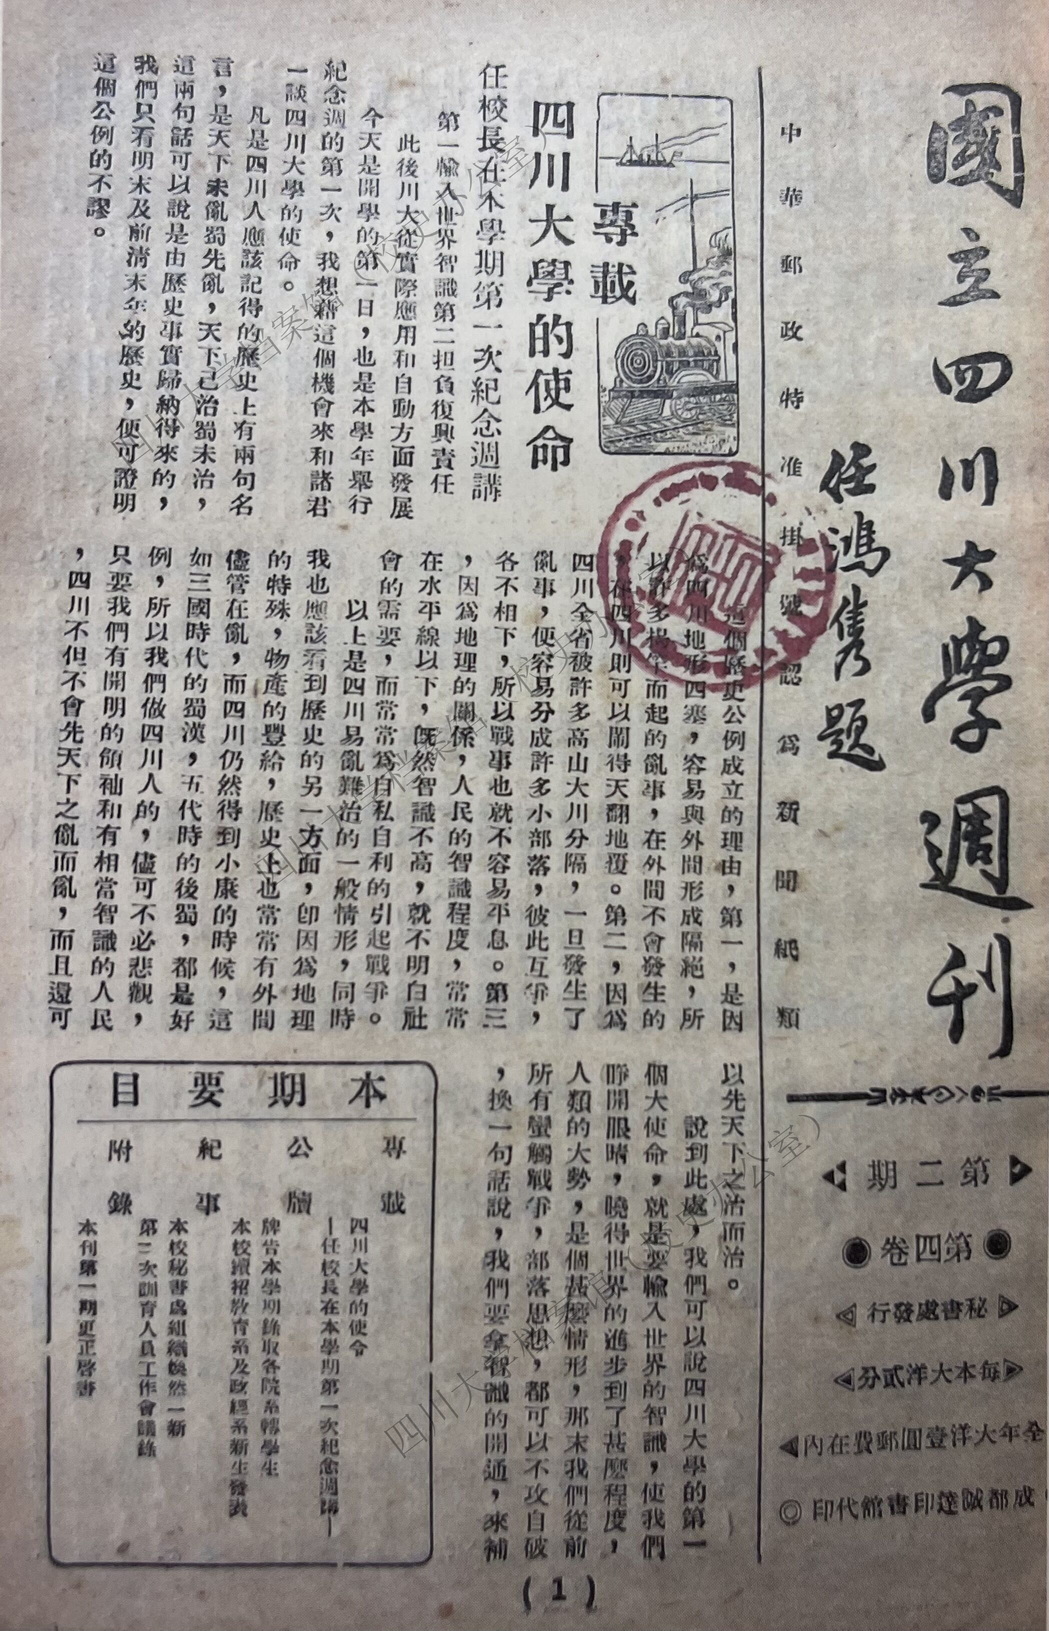 國立四川大學週刊
任鴻雋題
第二期
第四卷
秘書處發行
每本大洋貳分
全年大洋壹圓郵費在內
成都誠達印書館代印
中華郵政特准掛號認為新聞紙類
專載
四川大學的使命
任校長在本學期第一次紀念週講
第一輸入世界智識第二担負復興責任
此後川大從實際應用和自動方面發展
今天是開學的第一日，也是本學年舉行
紀念週的第一次，我想藉這個機會來和諸君
一談四川大學的使命。
凡是四川人應該記得的歷史上有兩句名
言，是天下未亂蜀先亂，天下已治蜀未治，
這兩句話可以說是由歷史事實歸納得來的，
我們只看明末及前清末年的歷史，便可證明
這個公例的不謬。
這個歷史公例成立的理由，第一，是因
為四川地形四塞，容易與外間形成隔絕，所
以許多揭竿而起的亂事，在外間不會發生的
，在四川則可以鬧得天翻地覆。第二，因為
四川全省被許多高山大川分隔，一旦發生了
亂事，便容易分成許多小部落，彼此互爭，
各不相下，所以戰事也就不容易平息。第三
，因為地理的關係，人民的智識程度，常常
在水平線以下，旣然智識不高，就不明白社
會的需要，而常常為自私自利的引起戰爭。
以上是四川易亂難治的一般情形，同時
我也應該看到歷史的另一方面，卽因為地理
的特殊，物產的豐給，歷史上也常常有外間
儘管在亂，而四川仍然得到小康的時候，這
如三國時代的蜀漢，五代時的後蜀，都是好
例，所以我們做四川人的，儘可不必悲觀，
只要我們有開明的領袖和有相當智識的人民
，四川不但不會先天下之亂而亂，而且還可
以先天下之治而治。
說到此處，我們可以說四川大學的第一
個大使命，就是要輸入世界的智識，使我們
睜開眼睛，曉得世界的進步到了甚麼程度，
人類的大勢，是個甚麼情形，那末我們從前
所有蠻觸戰爭，部落思想，都可以不攻自破
，換一句話說，我們要拿智識的開通，來補
本期要目
專載
四川大學的使令
—任校長在本學期第一次紀念週講—
公牘
牌告本學期錄取各院系轉學生
本校續招教育系及政經系新生發表
紀事
本校秘書處組織煥然一新
第二次訓育人員工作會議錄
附錄
本刊第一期更正啓書
(1)
四川大學档案馆（校史办公室）
四川大学档案馆（校史办公室）
四川大学档案馆（校史办公室）